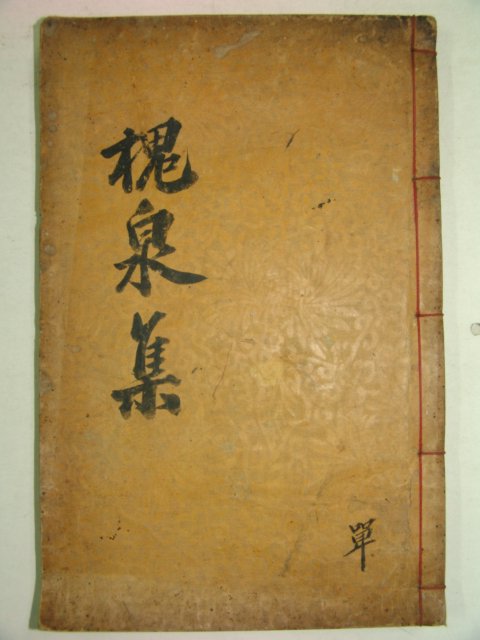 槐泉集
單